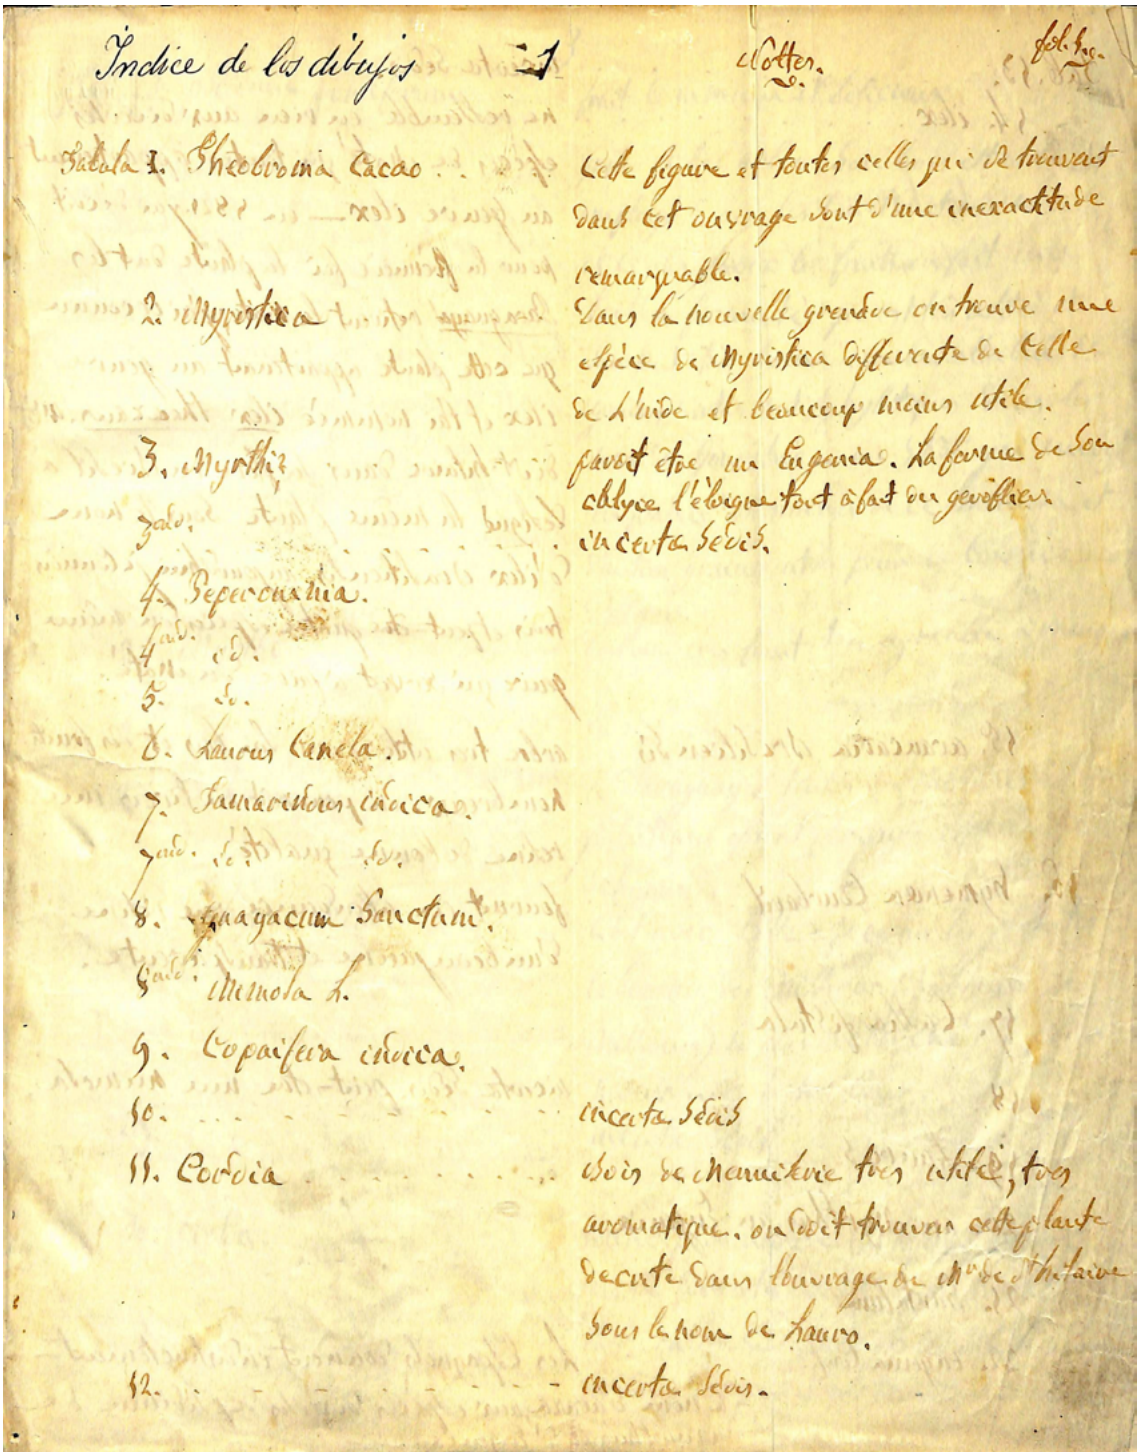 Indice de los dibujos -1 Nottes. fol. 1.
Tabula 1. Theobroma Cacao . . Cette figure et toutes celles qui se trouvent
dans cet ouvrage sont d'une inexactitude
remarquable.
2. Myristica Dans la nouvelle grenade on trouve une
espèce de Myristica differente de celle
de L'inde et beaucoup moins utile.
3. Myrthi? paroit être un Eugenia. La forme de son
calyce l'éloigne tout à fait du géroflier.
3 add. incertæ sedis.
4. Peperomia.
4 add. id.
5. id.
6. Laurus Canela.
7. Tamarindus indica.
7 add. id. id.
8. guayacum Sanctum.
8 add. Mimosa L.
9. Copaifera indica.
10. . . . incertæ sedis
11. Cordia . . . . . . . . bois de Menuiserie tres utile, tres
aromatique. on doit trouver cette plante
decrite dans l'ouvrage de Mr. de St hilaire
sous le nom de Lauro.
12. . . . . . . . - incertæ sedis.